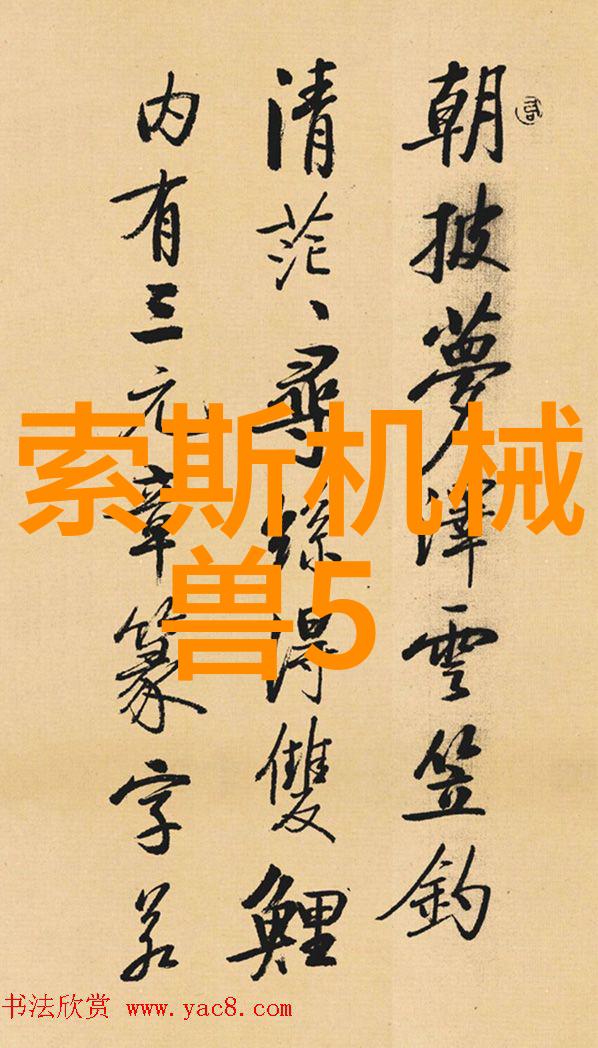 朝披夢澤雲笠釣
清茫、尋絲得雙鯉
内有三元章篆字若
索斯机械
兽5
书法欣赏 www.yac8.com